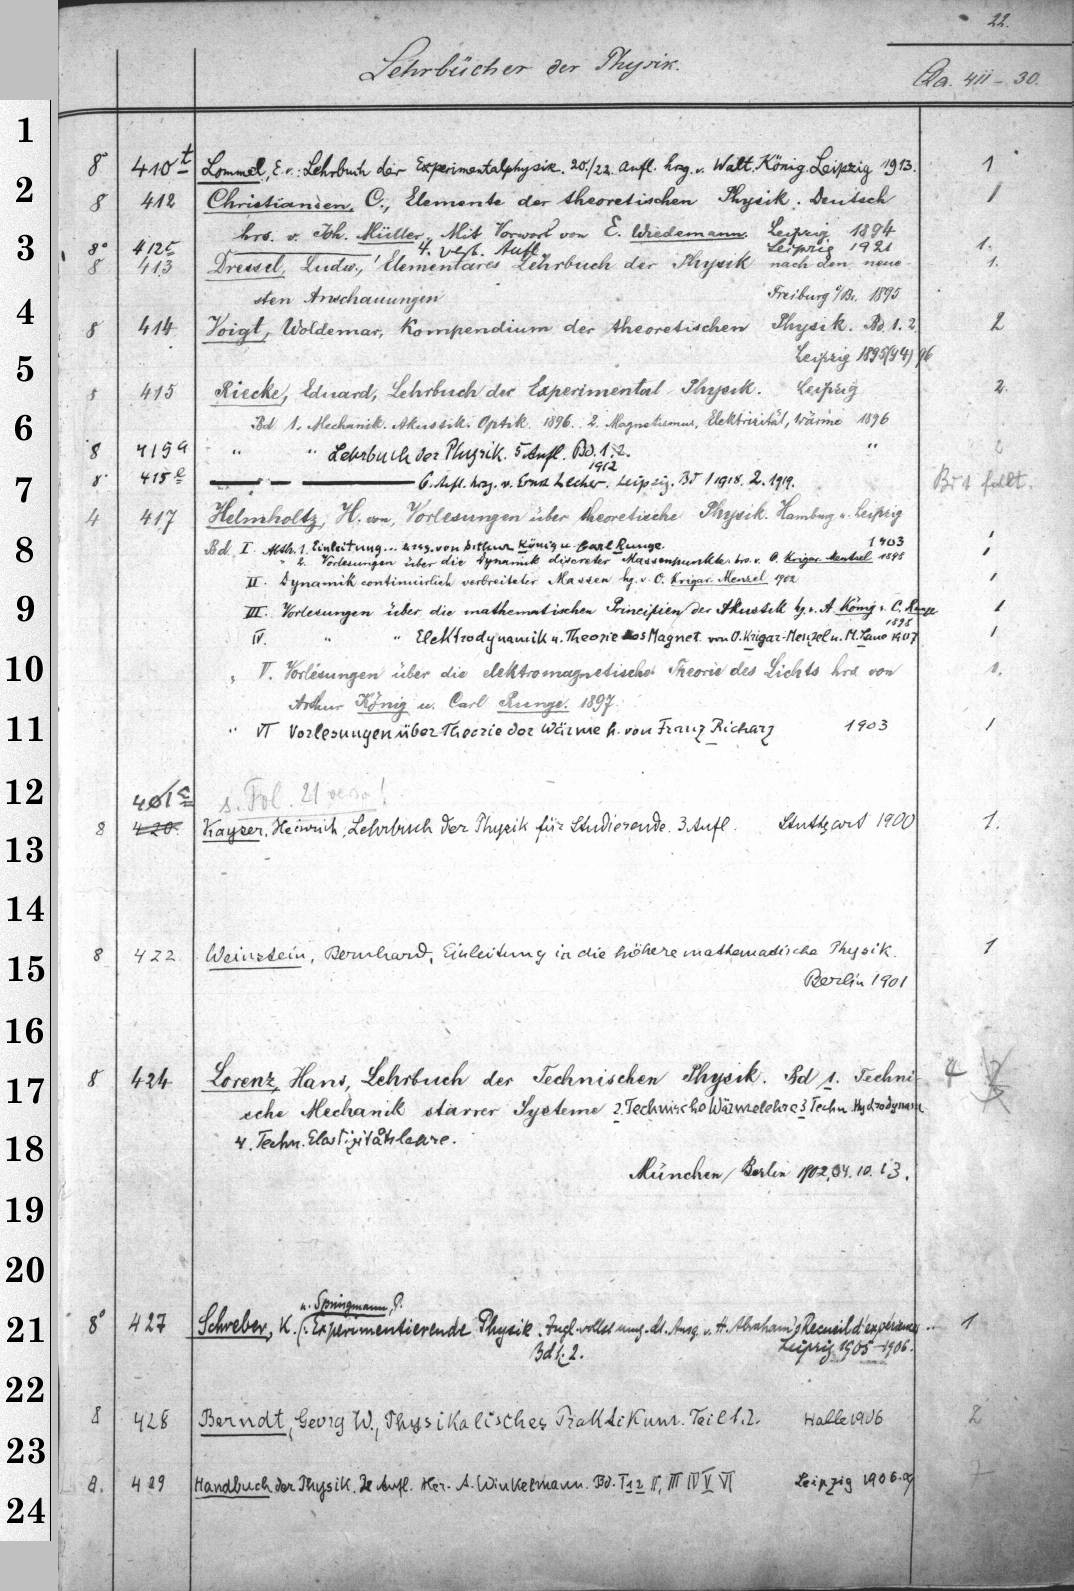 22.
Lehrbücher der Physik.
Qa. 411-30.
1
8° 410t Lommel, E. v.: Lehrbuch der Experimentalphysik. 20./22. Aufl. hrg. v. Walt. König. Leipzig 1913. 1
2
8 412 Christiansen, C., Elemente der theoretischen Physik. Deutsch 1
hrs. v. Joh. Müller, Mit Vorwort von E. Wiedemann. Leipzig 1894
3
8° 412c 4. verb. Aufl. Leipzig 1921 1.
8 413 Dressel, Ludw., Elementares Lehrbuch der Physik nach den neue- 1.
sten Anschauungen Freiburg i/Br. 1895
4
8 414 Voigt, Woldemar, Kompendium der theoretischen Physik. Bd. 1. 2. 2
Leipzig 1895(94) 96
5
8 415 Riecke, Eduard, Lehrbuch der Experimental Physik. Leipzig 2.
6
Bd 1. Mechanik. Akustik. Optik. 1896. 2. Magnetismus, Elektrizität, Wärme 1896
8 415a " " Lehrbuch der Physik. 5 Aufl. Bd. 1. 2. " 2
1912
7
8° 415e 6. Aufl. hrg. v. Ernst Lecher. Leipzig. Bd 1 1918. 2. 1919. Bd 1 fehlt.
4 417 Helmholtz, H. von, Vorlesungen über theoretische Physik. Hamburg u. Leipzig
8
Bd. I Abth. 1. Einleitung... hrsg. von Arthur König u. Carl Runge. 1903 1
" 2. Vorlesungen über die Dynamik discreter Massenpunkte hrs. v. O. Krigar Menzel 1898 1
II. Dynamik continuirlich verbreiteter Massen hg. v. O. Krigar Menzel 1902 1
9
III. Vorlesungen über die mathematischen Principien der Akustik hg. v. A. König u. C. Runge 1
1898
IV. " " Elektrodynamik u. Theorie des Magnet. von O. Krigar-Menzel u. M. Laue 1907 1
10
" V. Vorlesungen über die elektromagnetische Theorie des Lichts hrs von 1.
Arthur König u. Carl Runge. 1897.
11
" VI Vorlesungen über Theorie der Wärme h. von Franz Richarz 1903 1
12
401c s. Fol. 21 verso!
8 420. Kayser, Heinrich, Lehrbuch der Physik für Studierende. 3 Aufl. Stuttgart 1900 1.
13
14
8 422 Weinstein, Bernhard, Einleitung in die höhere mathematische Physik. 1
15
Berlin 1901
16
8 424 Lorenz, Hans, Lehrbuch der Technischen Physik. Bd 1. Techni- 4
17
sche Mechanik starrer Systeme 2. Technische Wärmelehre 3 Techn. Hydrodynam
18
4. Techn. Elastizitätslehre.
München / Berlin 1902, 04. 10. 13.
19
20
u. Springmann, P.
21
8° 427 Schreber, K. (: Experimentierende Physik. Zugl. vollst. umg. dt. Ausg. v. H. Abraham's Recueil d'expériences .. 1
Bd 1. 2. Leipzig 1905-1906.
22
8 428 Berndt, Georg W., Physikalisches Praktikum. Teil 1. 2. Halle 1906 2
23
8. 429 Handbuch der Physik. 2e Aufl. Her. A. Winkelmann. Bd. I 1 2 II, III IV V VI Leipzig 1906.09
24